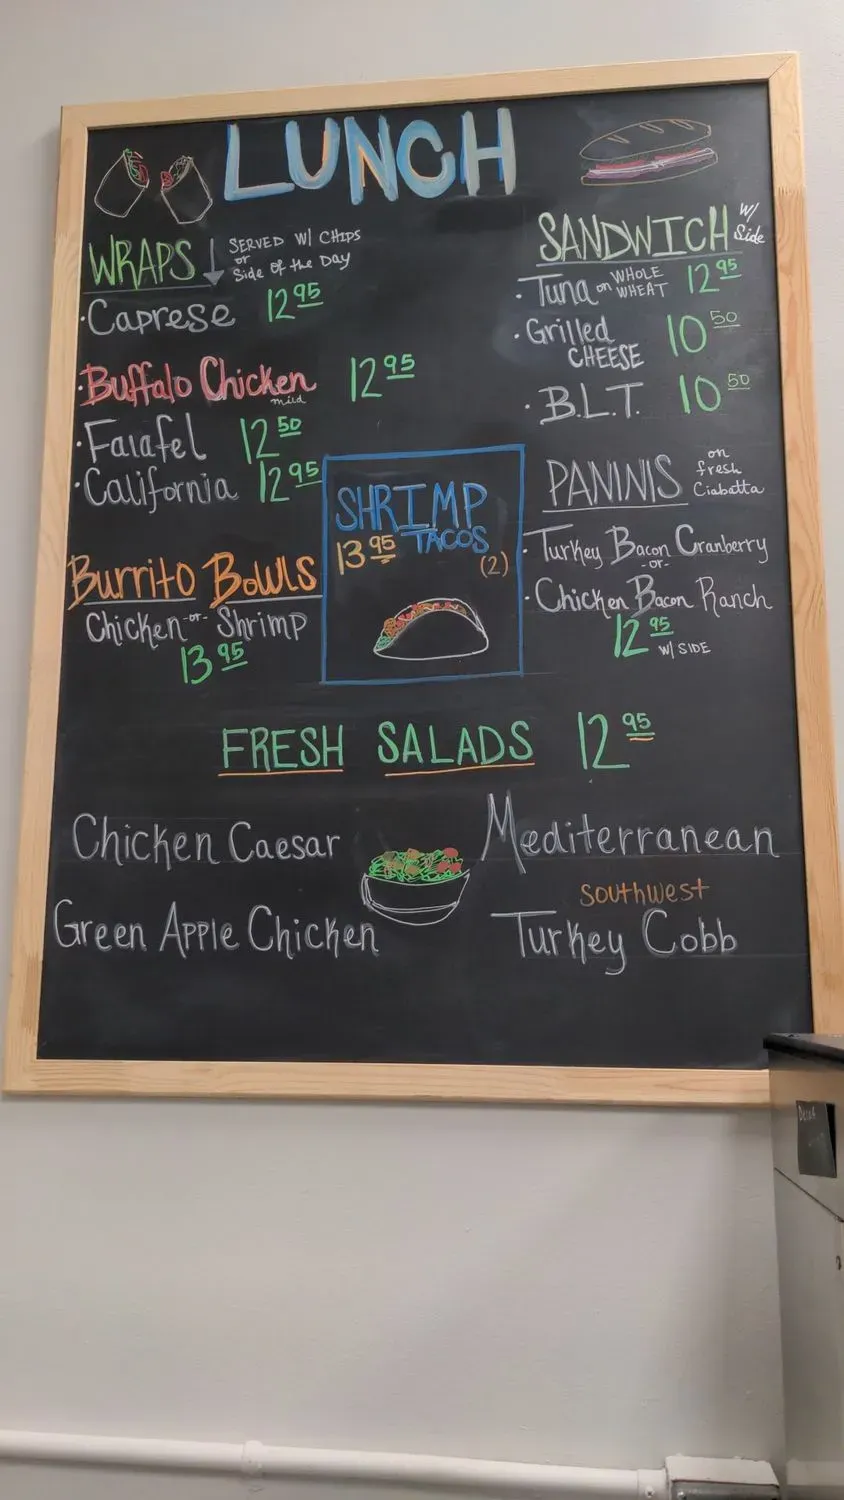 LUNCH
WRAPS
SERVED W/ CHIPS
or
Side of the Day
· Caprese 12 95
· Buffalo Chicken 12 95
mild
· Falafel 12 50
· California 12 95
Burrito Bowls
Chicken -or- Shrimp
13 95
SHRIMP
TACOS
13 95
(2)
SANDWICH W/ Side
· Tuna on WHOLE WHEAT 12 95
· Grilled CHEESE 10 50
· B.L.T. 10 50
PANINIS on fresh Ciabatta
· Turkey Bacon Cranberry
-or-
· Chicken Bacon Ranch
12 95 W/ SIDE
FRESH SALADS 12 95
Chicken Caesar
Mediterranean
Green Apple Chicken
Southwest
Turkey Cobb
Decaf